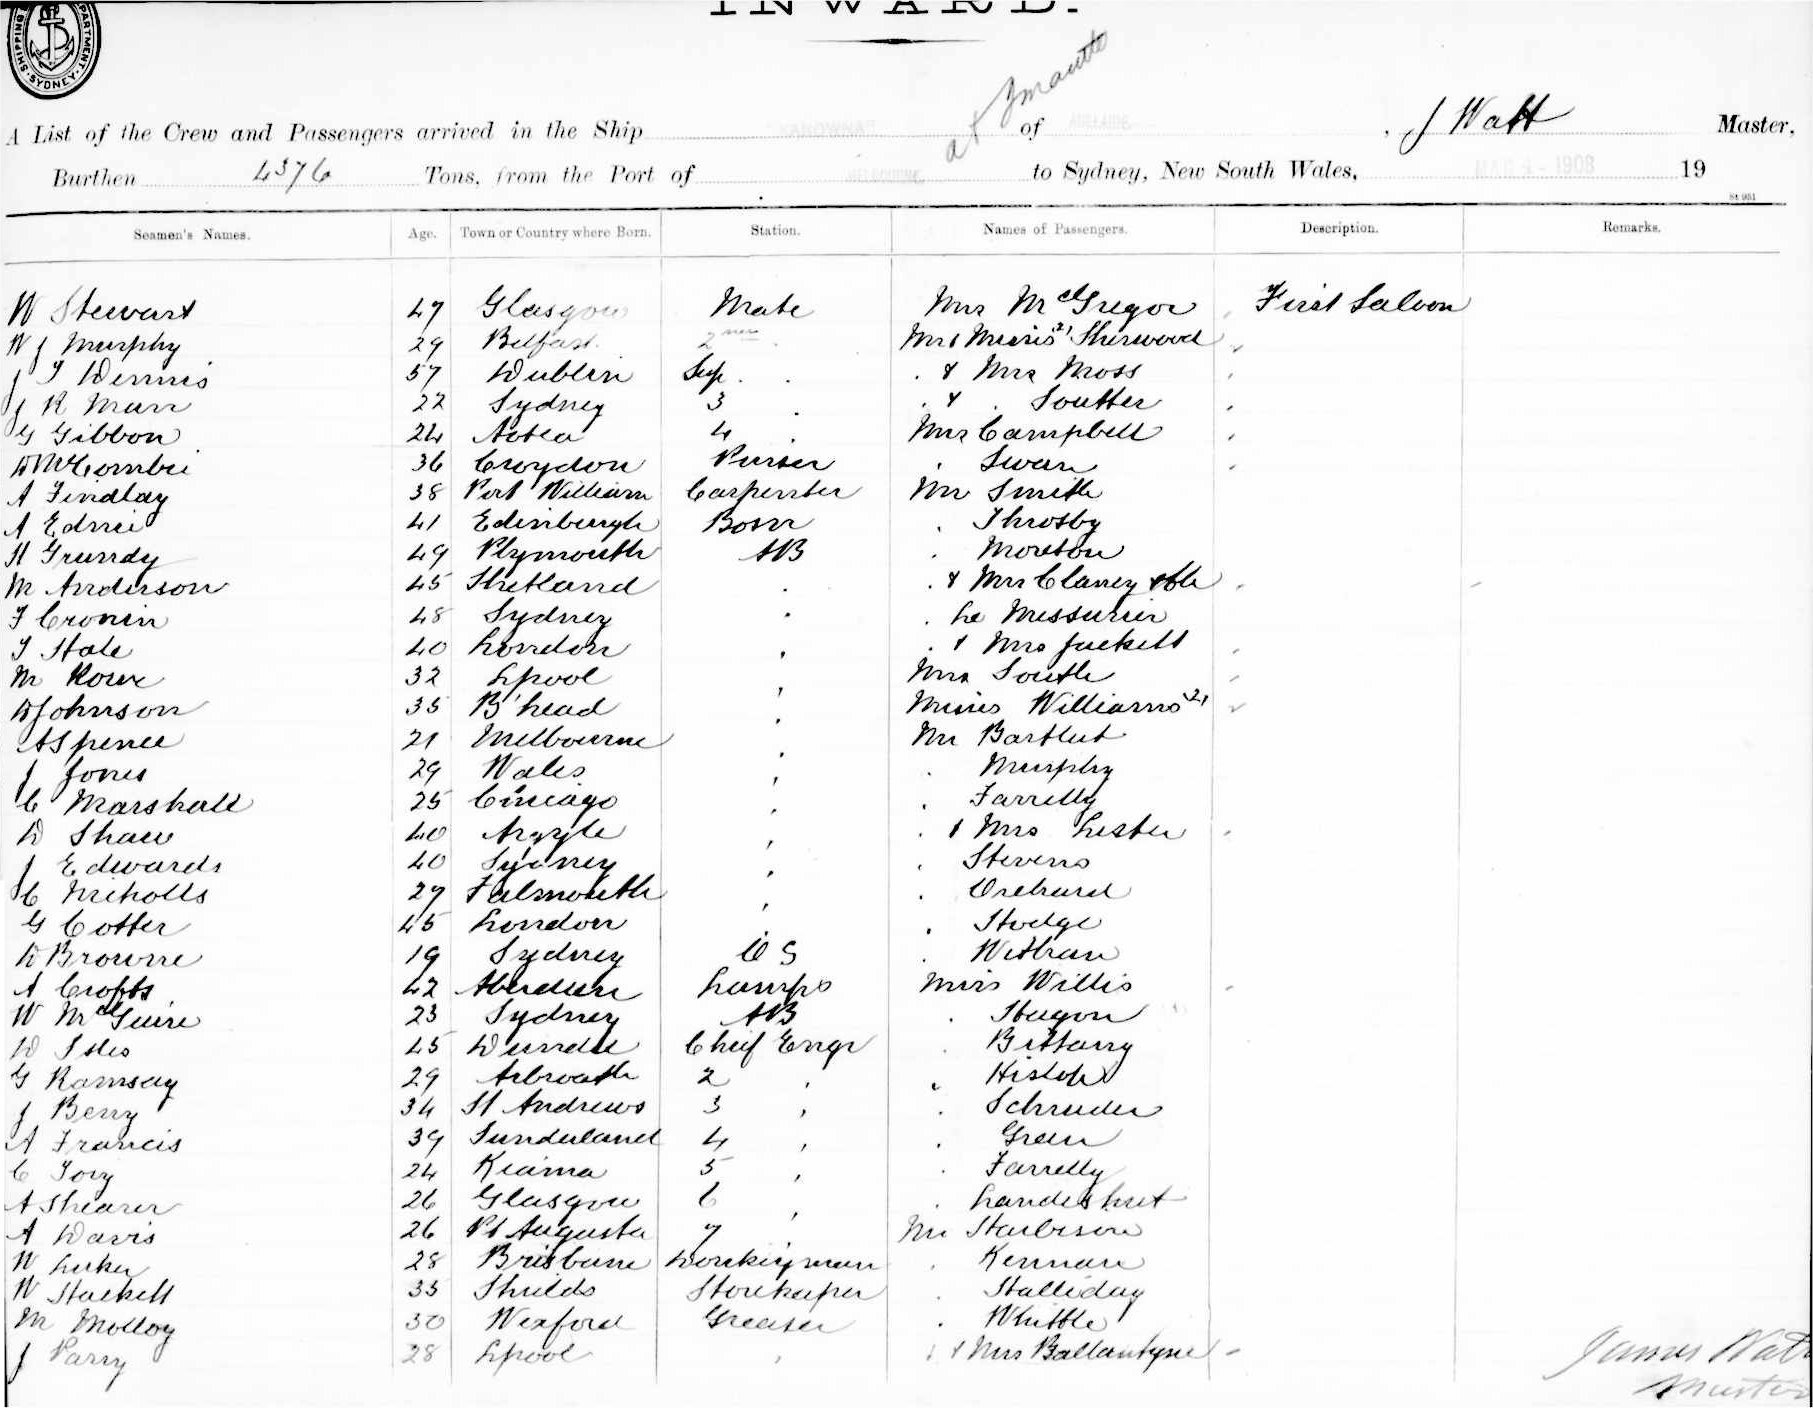 INWARD.
SHIPPING DEPARTMENT. SYDNEY.
at Fmantle
A List of the Crew and Passengers arrived in the Ship KANOWNA of ADELAIDE, J Watt Master,
Burthen 4376 Tons, from the Port of MELBOURNE to Sydney, New South Wales, MAR 4 - 1908 19
Seamen's Names. Age. Town or Country where Born. Station. Names of Passengers. Description. Remarks.
W Stewart 47 Glasgow Mate Mrs McGregor First Saloon
W J Murphy 29 Belfast 2nd Mrs & Misses (2) Sherwood
J T Dennis 57 Dublin Sup. . & Mrs Moss
J R Marr 22 Sydney 3 . & . Soutter
G Gibbon 24 Aotea 4 Mrs Campbell
D McCombie 36 Croydon Purser . Swan
A Findlay 38 Port William Carpenter Mr Smith
A Ednie 41 Edinburgh Bosn . Throsby
H Grundy 49 Plymouth AB . Moreton
M Anderson 45 Shetland . . & Mrs Clancy & Ch
T Cronin 48 Sydney . . Le Messurier
T Hale 40 London . . & Mrs Juckett
M Roux 32 Lpool . Mrs South
D Johnson 35 B'head . Misses Williams (2)
A Spence 21 Melbourne . Mr Bartlett
J Jones 29 Wales . . Murphy
C Marshall 25 Chicago . . Farrelly
D Shaw 40 Argyle . . & Mrs Lester
J Edwards 40 Sydney . . Stevens
C Nicholls 27 Falmouth . . Orchard
G Cotter 45 London . . Hodge
D Browne 19 Sydney O S .
A Crofts 42 Aberdeen Lamps Miss Willis
W McGuire 23 Sydney AB .
D Isles 45 Dundee Chief Engr . Brittany
G Ramsay 29 Arbroath 2 . . Hislop
J Berry 34 St Andrews 3 . . Schruder
A Francis 39 Sunderland 4 . . Green
C Tory 24 Kiama 5 . . Farrelly
A Shearer 26 Glasgow 6 . . Landeshut
A Davis 26 Pt Augusta 7 . Mr Harbison
W Luker 28 Brisbane Donkeyman . Kennan
W Hackett 35 Shields Storekeeper . Halliday
M Molloy 30 Wexford Greaser . Whittle
J Parry 28 Lpool . . & Mrs Ballantyne
James Watt
Master